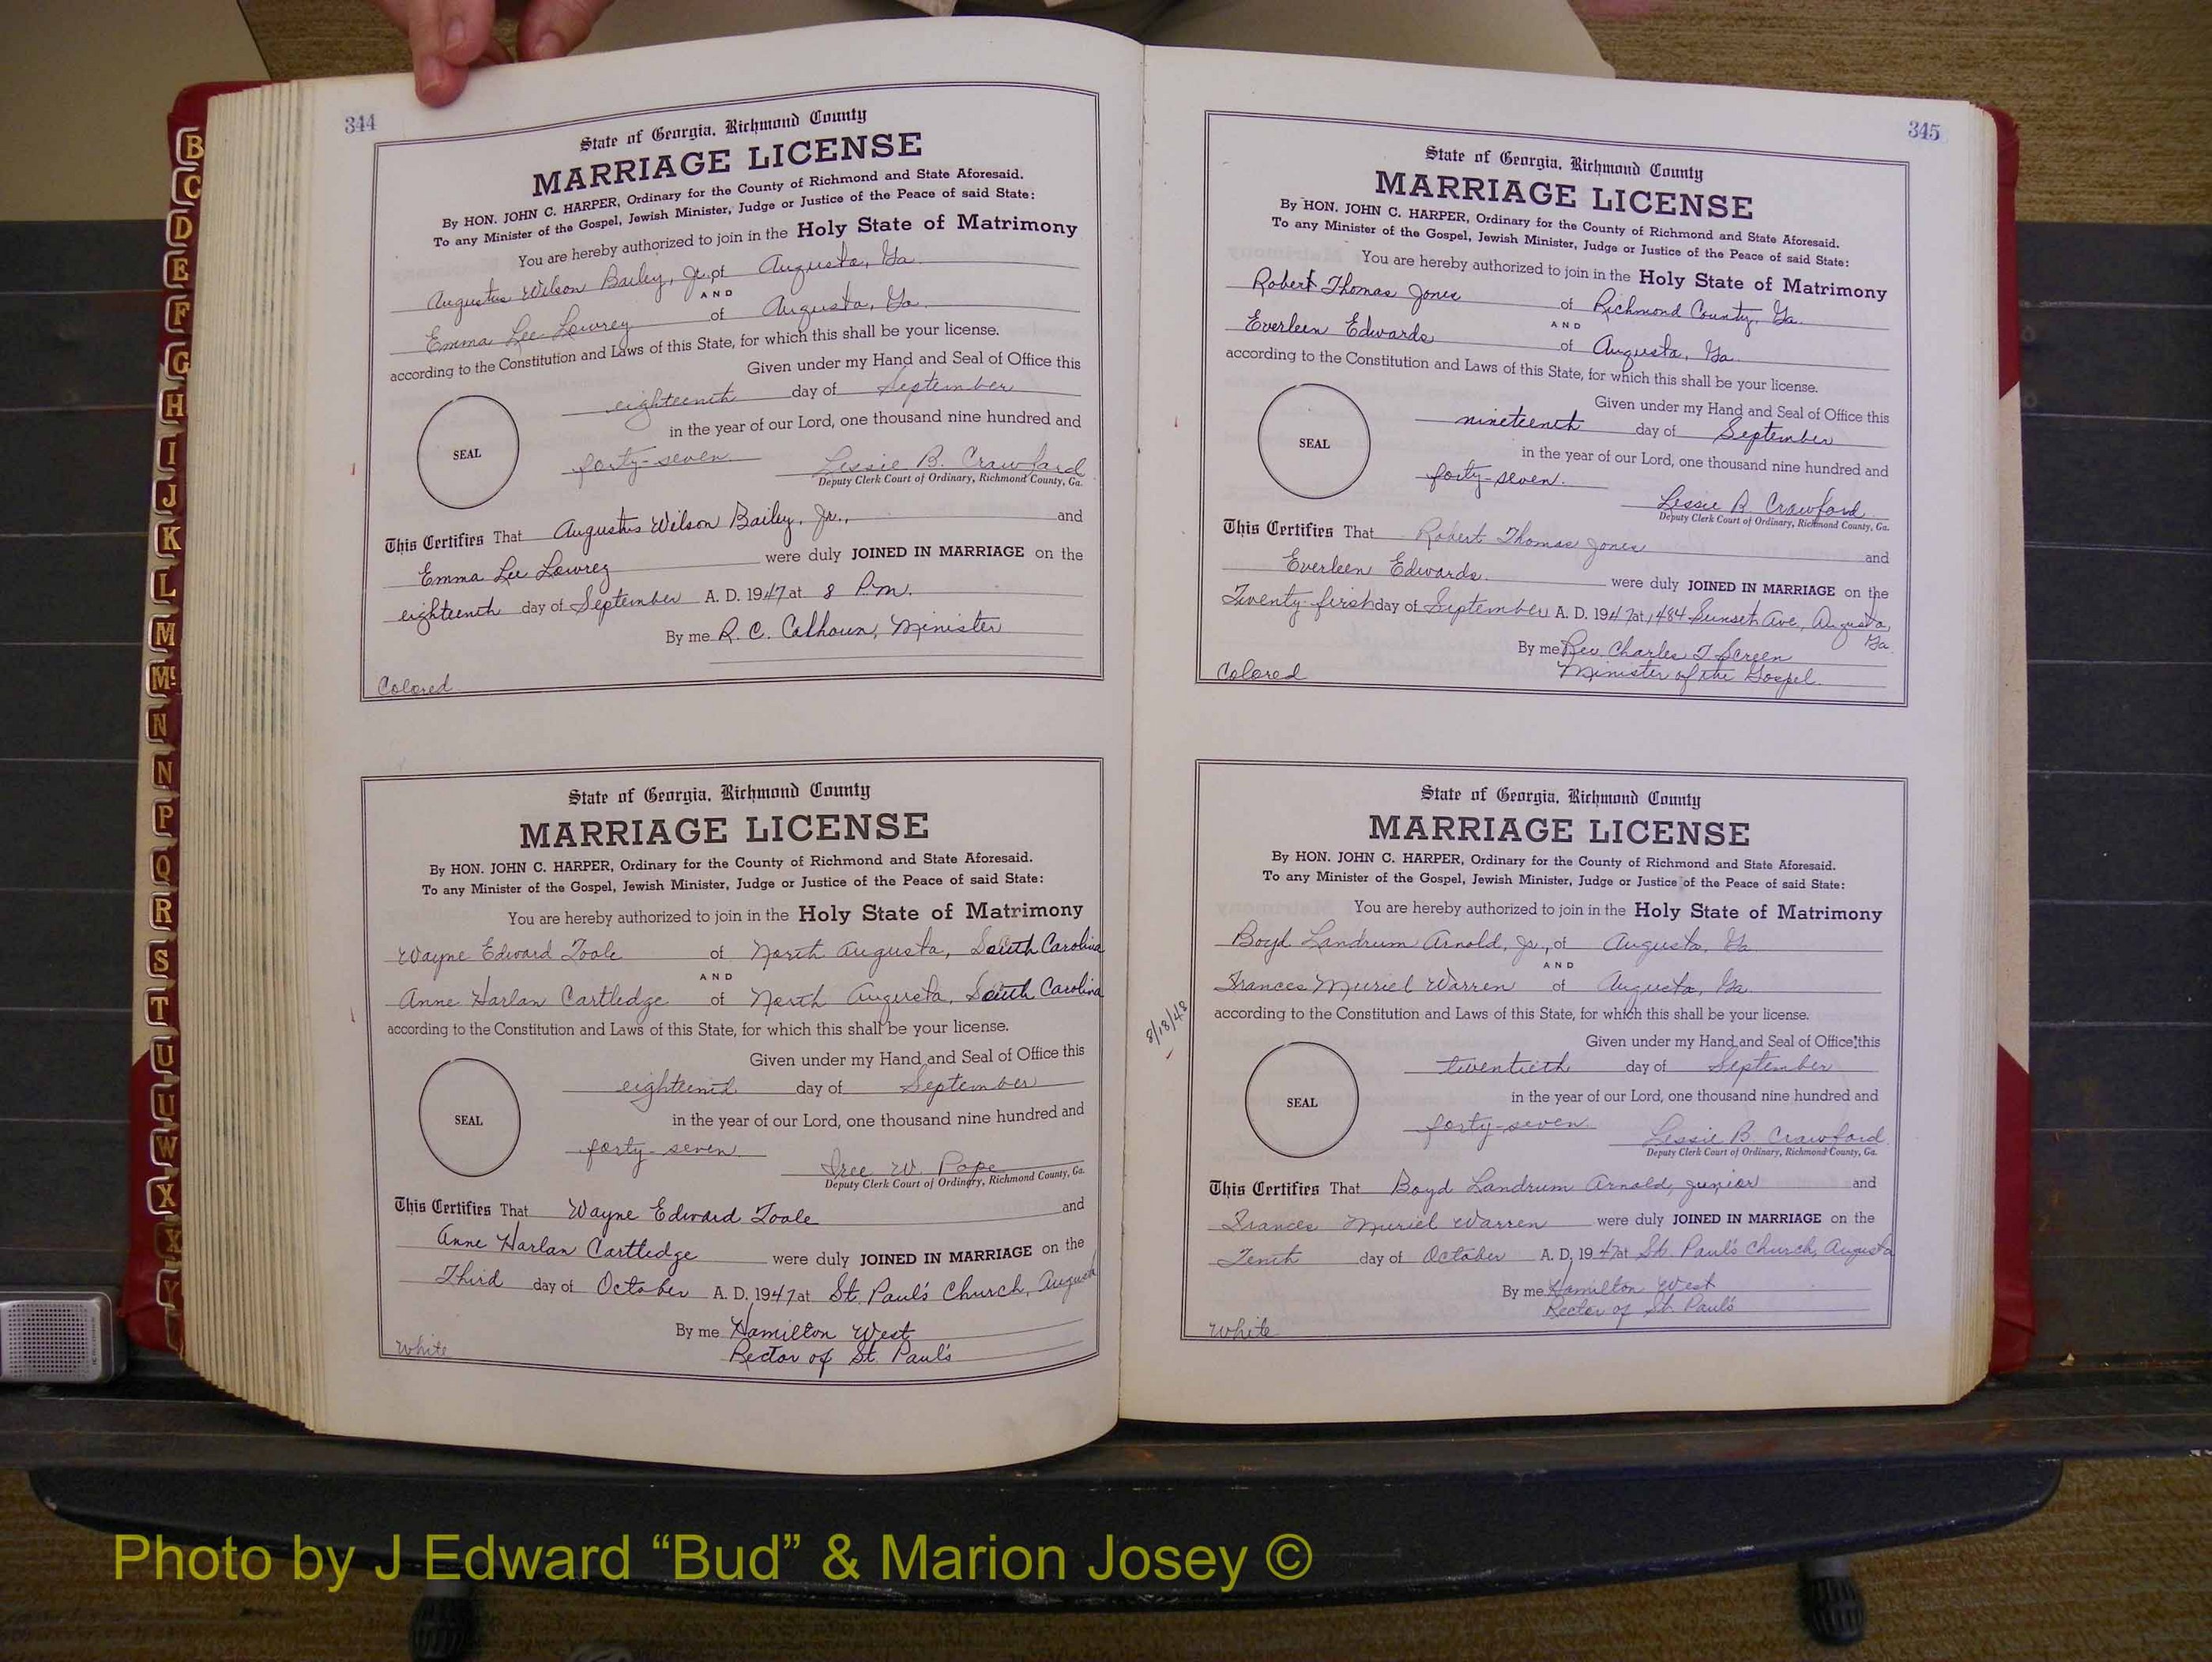 344
State of Georgia, Richmond County
MARRIAGE LICENSE
By HON. JOHN C. HARPER, Ordinary for the County of Richmond and State Aforesaid.
To any Minister of the Gospel, Jewish Minister, Judge or Justice of the Peace of said State:
You are hereby authorized to join in the Holy State of Matrimony
Augustus Wilson Bailey, Jr., of Augusta, Ga.
AND
Emma Lee Lowrey of Augusta, Ga.
according to the Constitution and Laws of this State, for which this shall be your license.
Given under my Hand and Seal of Office this
eighteenth day of September
in the year of our Lord, one thousand nine hundred and
SEAL
forty-seven. Lessie B. Crawford
Deputy Clerk Court of Ordinary, Richmond County, Ga.
This Certifies That Augustus Wilson Bailey, Jr., and
Emma Lee Lowrey were duly JOINED IN MARRIAGE on the
eighteenth day of September A. D. 1947 at 8 P.m.
By me R. C. Calhoun, Minister
Colored
State of Georgia, Richmond County
MARRIAGE LICENSE
By HON. JOHN C. HARPER, Ordinary for the County of Richmond and State Aforesaid.
To any Minister of the Gospel, Jewish Minister, Judge or Justice of the Peace of said State:
You are hereby authorized to join in the Holy State of Matrimony
Wayne Edward Toole of North Augusta, South Carolina
AND
Anne Harlan Cartledge of North Augusta, South Carolina
according to the Constitution and Laws of this State, for which this shall be your license.
Given under my Hand and Seal of Office this
eighteenth day of September
in the year of our Lord, one thousand nine hundred and
SEAL
forty-seven W. Pope
Deputy Clerk Court of Ordinary, Richmond County, Ga.
This Certifies That Wayne Edward Toole and
Anne Harlan Cartledge were duly JOINED IN MARRIAGE on the
Third day of October A. D. 1947 at St. Paul's Church, Augusta
By me Hamilton West
Rector of St. Paul's
White
345
State of Georgia, Richmond County
MARRIAGE LICENSE
By HON. JOHN C. HARPER, Ordinary for the County of Richmond and State Aforesaid.
To any Minister of the Gospel, Jewish Minister, Judge or Justice of the Peace of said State:
You are hereby authorized to join in the Holy State of Matrimony
Robert Thomas Jones of Richmond County, Ga.
AND
Everleen Edwards of Augusta, Ga.
according to the Constitution and Laws of this State, for which this shall be your license.
Given under my Hand and Seal of Office this
nineteenth day of September
in the year of our Lord, one thousand nine hundred and
SEAL
forty-seven. Lessie B. Crawford
Deputy Clerk Court of Ordinary, Richmond County, Ga.
This Certifies That Robert Thomas Jones and
Everleen Edwards. were duly JOINED IN MARRIAGE on the
Twenty-first day of September A. D. 1947 at 1484 Sunset Ave, Augusta,
Ga.
By me Rev. Charles T Screen
Minister of the Gospel.
Colored
State of Georgia, Richmond County
MARRIAGE LICENSE
By HON. JOHN C. HARPER, Ordinary for the County of Richmond and State Aforesaid.
To any Minister of the Gospel, Jewish Minister, Judge or Justice of the Peace of said State:
You are hereby authorized to join in the Holy State of Matrimony
Boyd Landrum Arnold, Jr., of Augusta, Ga.
AND
Frances Muriel Warren of Augusta, Ga.
according to the Constitution and Laws of this State, for which this shall be your license.
8/18/48
Given under my Hand and Seal of Office this
twentieth day of September
in the year of our Lord, one thousand nine hundred and
SEAL
forty-seven. Lessie B. Crawford
Deputy Clerk Court of Ordinary, Richmond County, Ga.
This Certifies That Boyd Landrum Arnold, junior and
Frances Muriel Warren were duly JOINED IN MARRIAGE on the
Tenth day of October A. D. 1947 at St. Paul's Church, Augusta
By me Hamilton West
Rector of St. Paul's
White
B
C
D
E
F
G
H
I
J
K
L
M
Mc
N
N
P
Q
R
S
T
U
U
W
X
X
Y
Photo by J Edward “Bud” & Marion Josey ©